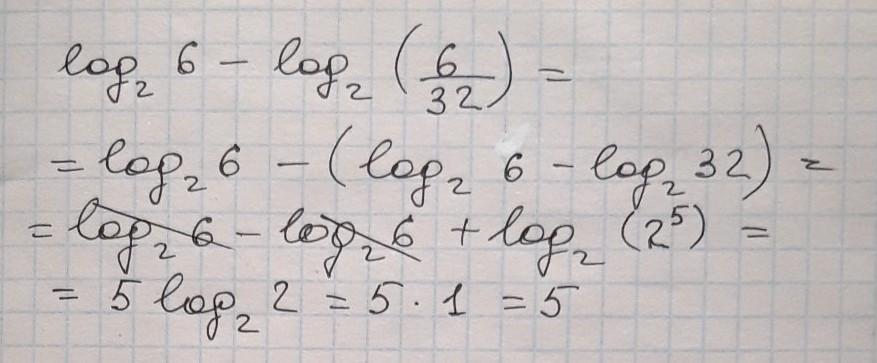 log₂ 6 − log₂ (6/32) =
= log₂ 6 − (log₂ 6 − log₂ 32) =
= log₂ 6 − log₂ 6 + log₂ (2⁵) =
= 5 log₂ 2 = 5 · 1 = 5